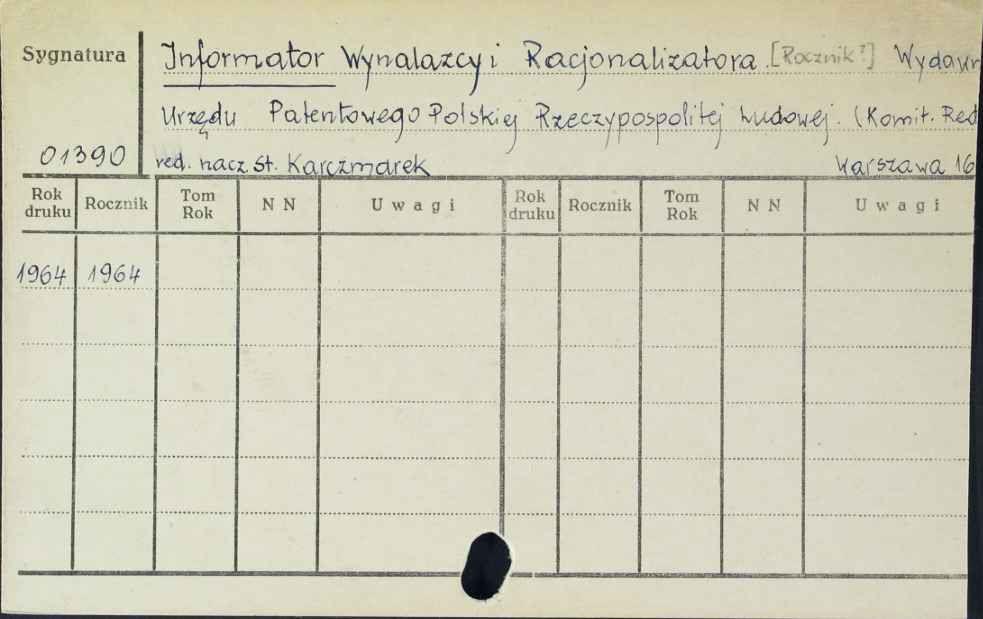 Sygnatura
Informator Wynalazcy i Racjonalizatora. [Rocznik?] Wydawn
Urzędu Patentowego Polskiej Rzeczypospolitej Ludowej. (Komit. Red
01390 red. nacz. St. Karczmarek Warszawa 16
Rok druku Rocznik Tom Rok N N Uwagi Rok druku Rocznik Tom Rok N N Uwagi
1964 1964